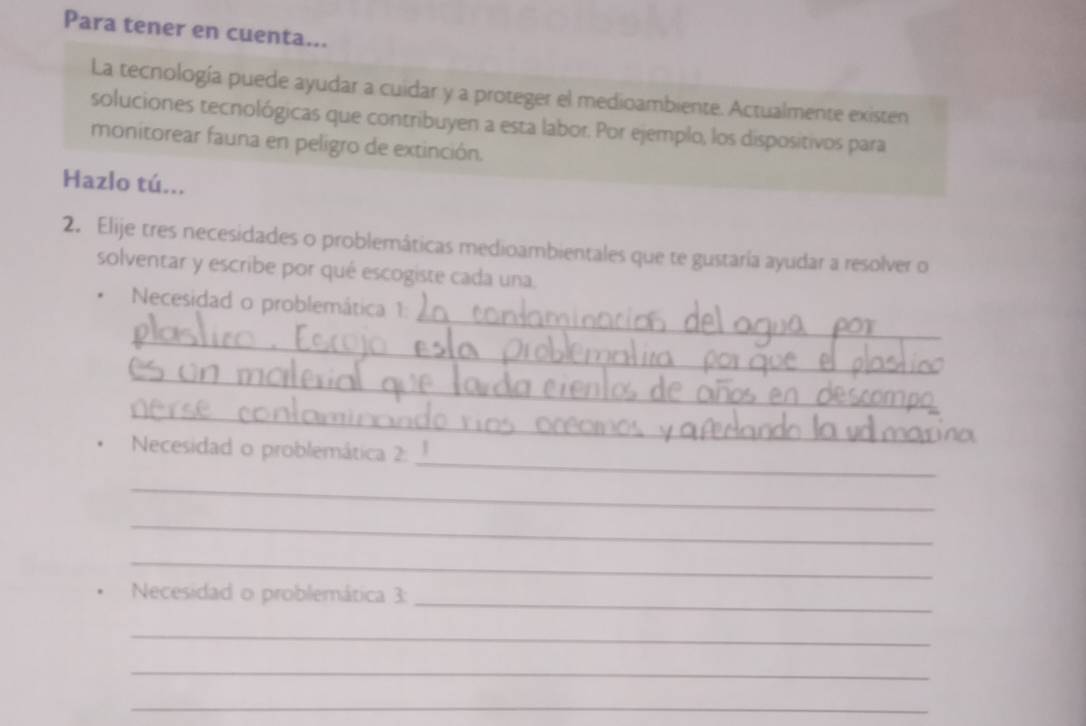 Para tener en cuenta...
La tecnología puede ayudar a cuidar y a proteger el medioambiente. Actualmente existen
soluciones tecnológicas que contribuyen a esta labor. Por ejemplo, los dispositivos para
monitorear fauna en peligro de extinción.
Hazlo tú...
2. Elije tres necesidades o problemáticas medioambientales que te gustaría ayudar a resolver o
solventar y escribe por qué escogiste cada una.
• Necesidad o problemática 1: La contaminacion del agua por
plastico. Escojo esta problematica por que el plastico
es un material que tarda cientos de años en descompo
nerse contaminando rios oceanos y afectando la vd marina
• Necesidad o problemática 2:
• Necesidad o problemática 3: